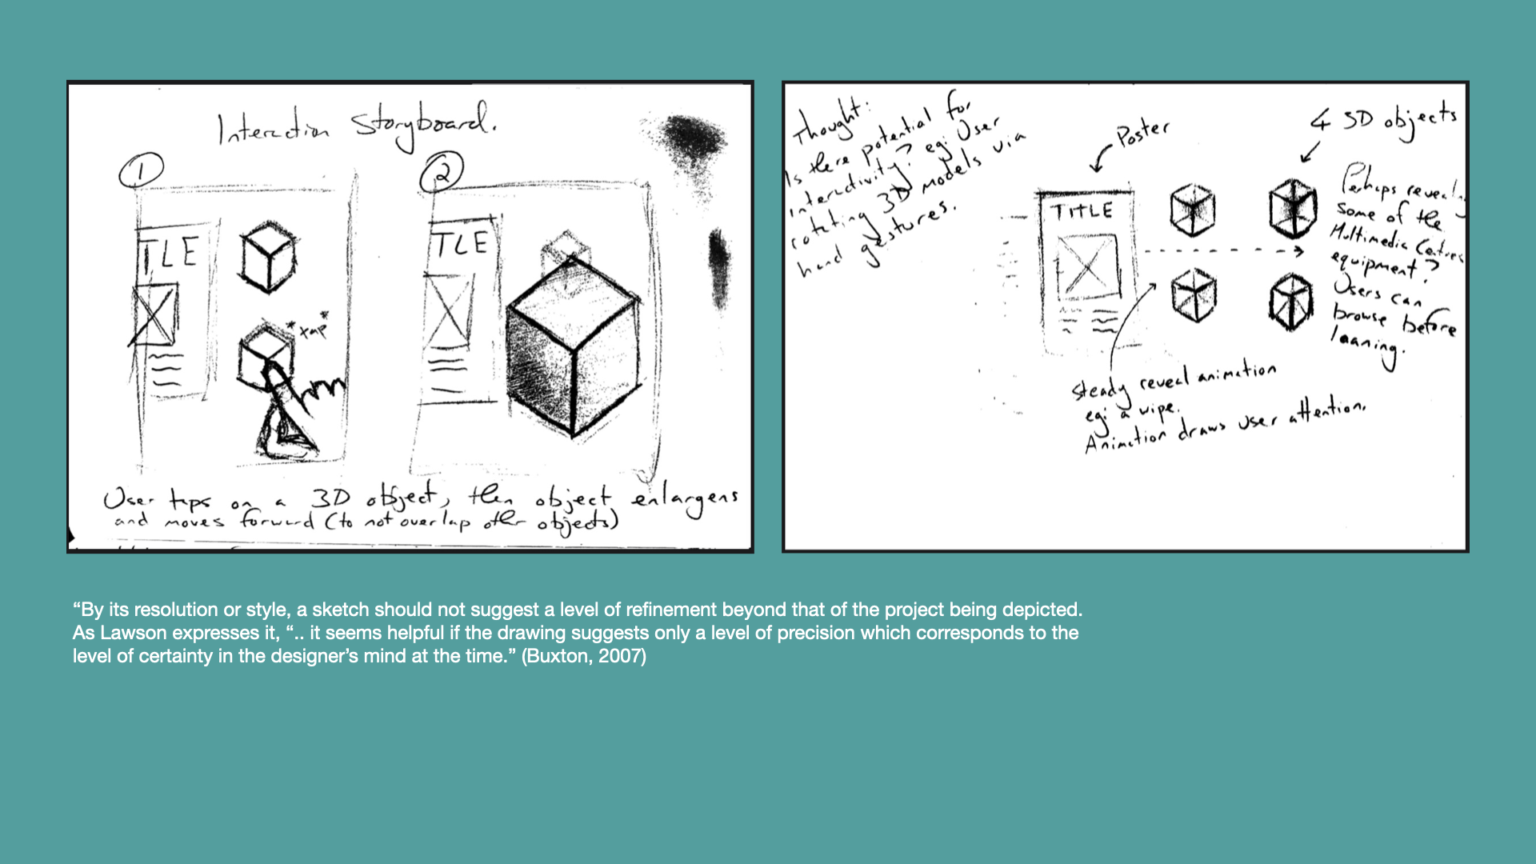 Interaction Storyboard.
1
2
TLE
TLE
*xap*
User taps on a 3D object, then object enlargens
and moves forward (to not overlap other objects)
Thought:
Is there potential for
interactivity? eg: User
rotating 3D models via
hand gestures.
Poster
TITLE
4 3D objects
Perhaps reveal
some of the
Multimedia Centres
equipment?
Users can
browse before
loaning.
Steady reveal animation
eg: a wipe.
Animation draws user attention.
“By its resolution or style, a sketch should not suggest a level of refinement beyond that of the project being depicted.
As Lawson expresses it, “.. it seems helpful if the drawing suggests only a level of precision which corresponds to the
level of certainty in the designer’s mind at the time.” (Buxton, 2007)